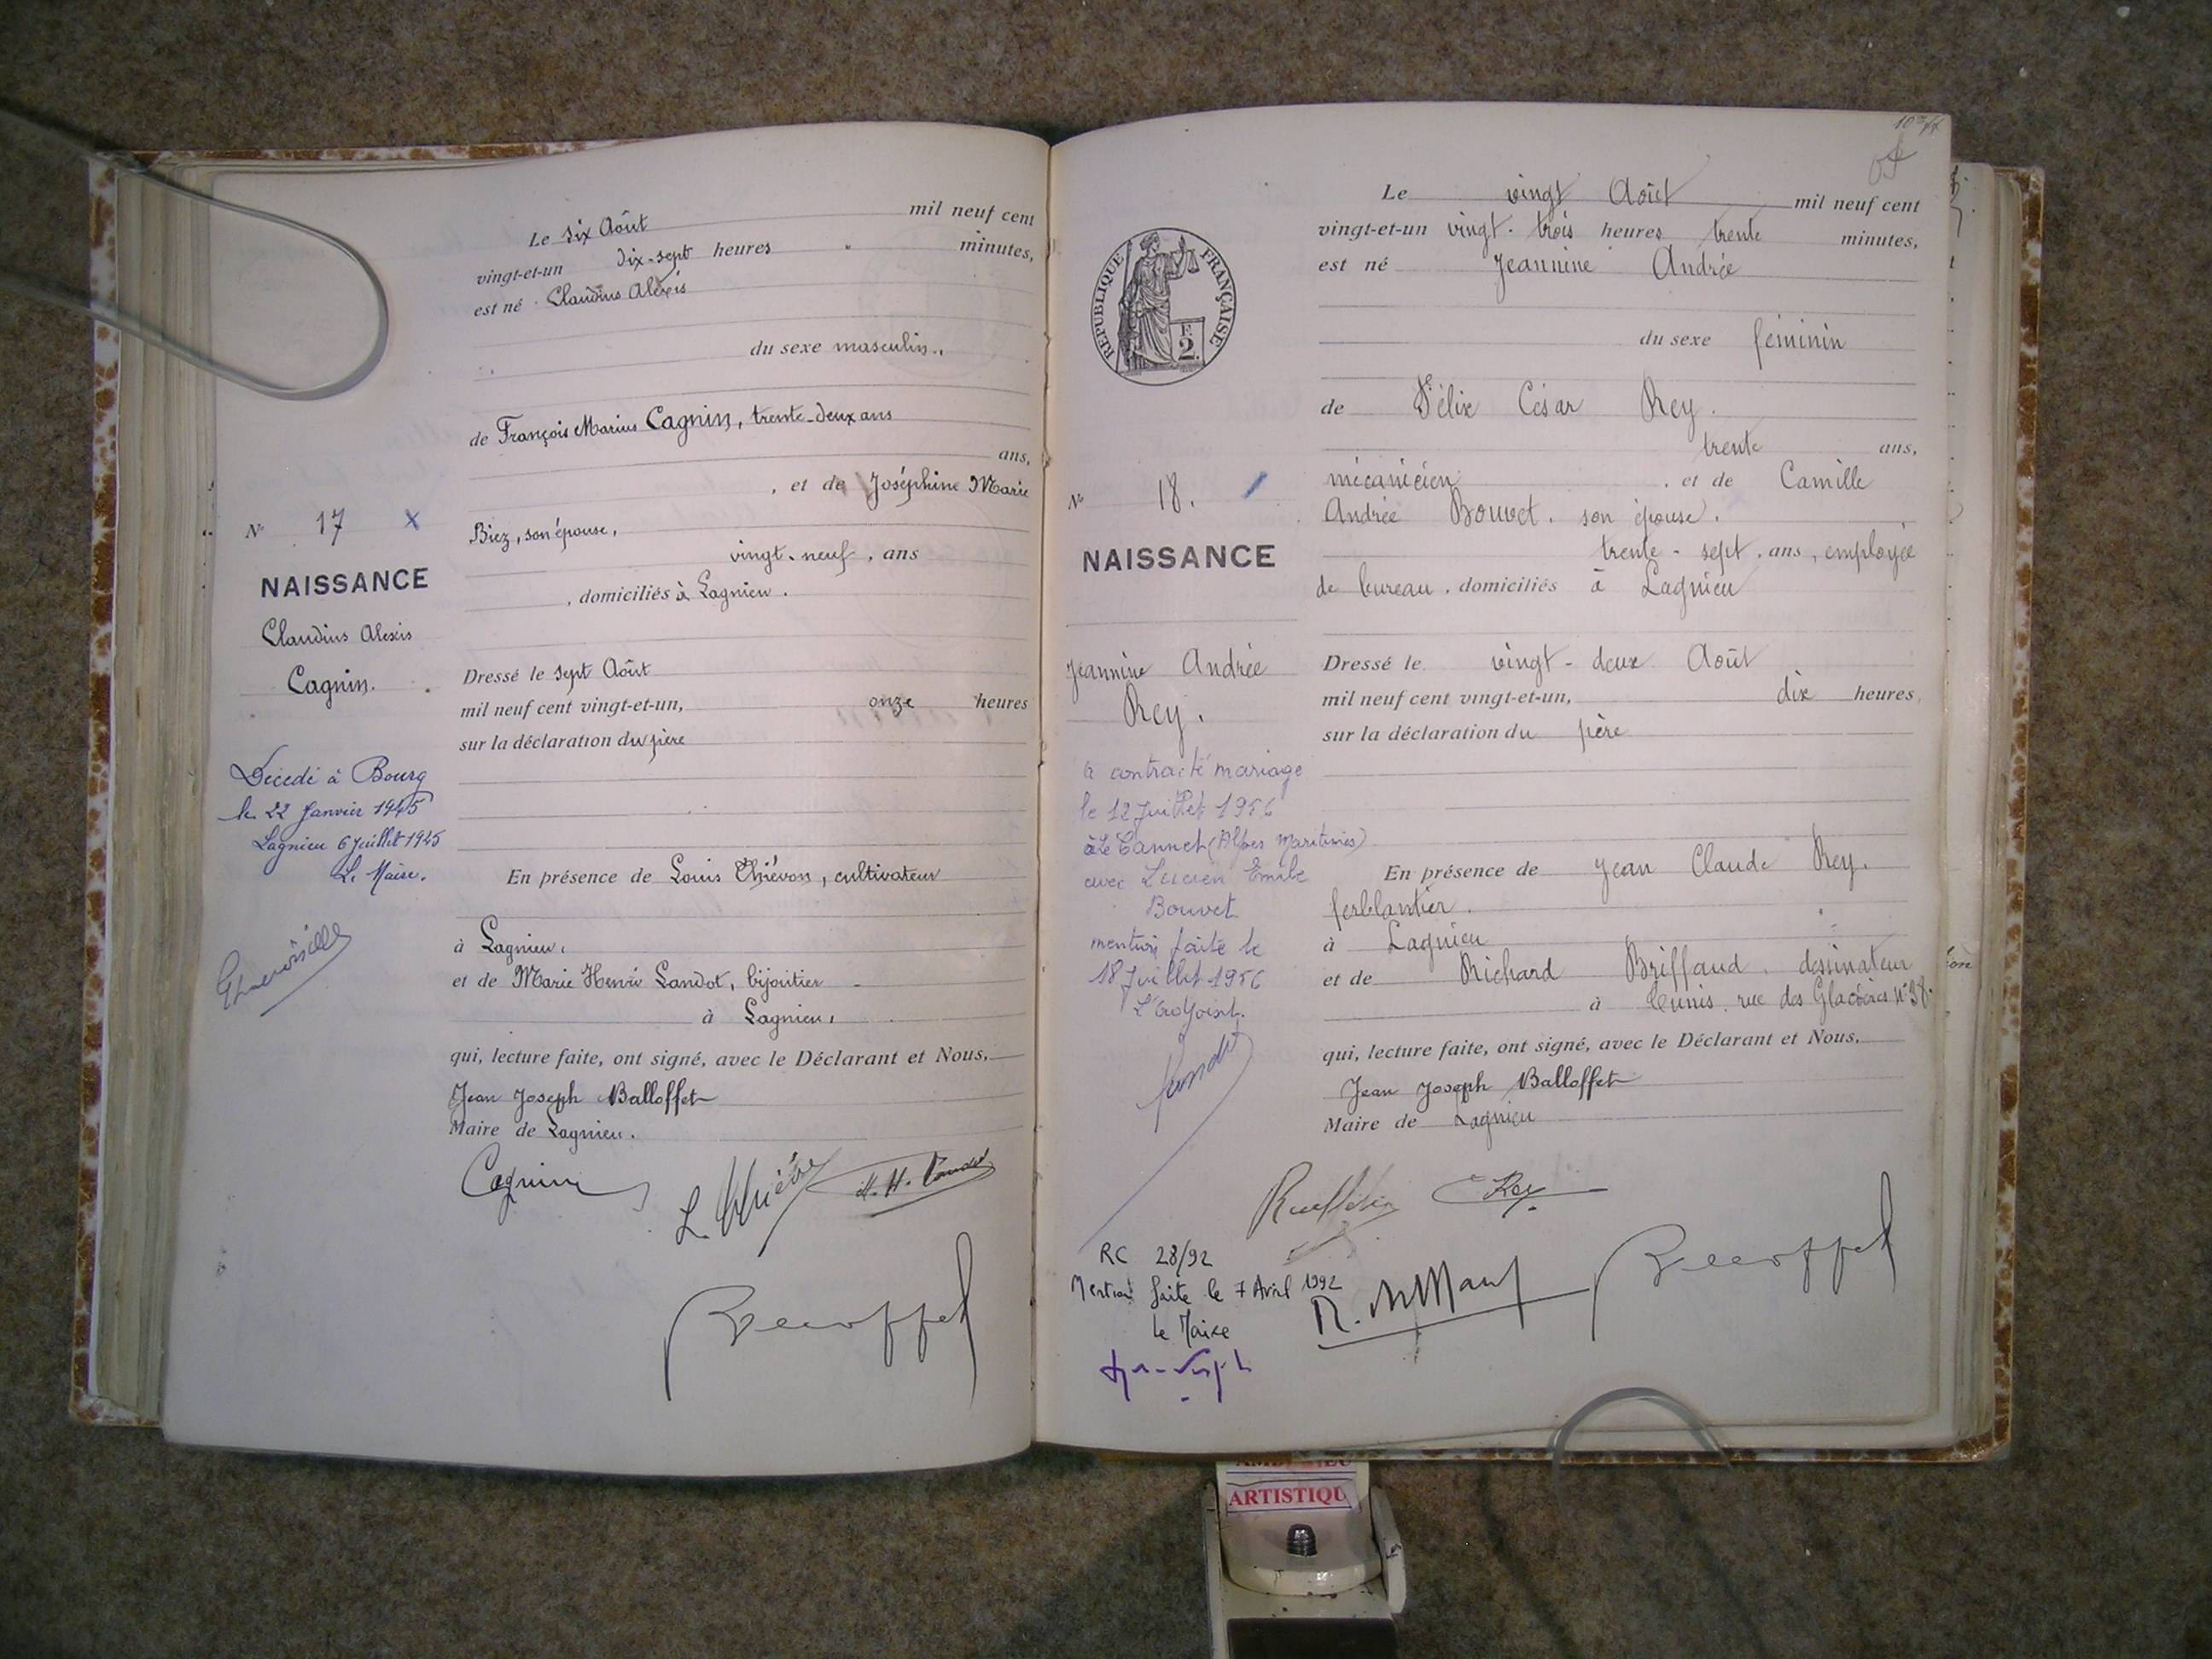 Le six Août mil neuf cent
vingt-et-un dix-sept heures minutes,
est né Claudius Alexis
du sexe masculin.,
de François Marius Cagnin, trente-deux ans
ans,
, et de Joséphine Marie
Biez, son épouse,
vingt-neuf, ans
, domiciliés à Lagnieu.
N° 17 x
NAISSANCE
Claudius Alexis
Cagnin.
Dressé le sept Août
mil neuf cent vingt-et-un, onze heures
sur la déclaration du père
Décédé à Bourg
le 22 Janvier 1945
Lagnieu 6 Juillet 1945
Le Maire.
En présence de Louis Thiévon, cultivateur
à Lagnieu,
et de Marie Henri Landot, bijoutier
à Lagnieu,
qui, lecture faite, ont signé, avec le Déclarant et Nous,
Jean Joseph Balloffet
Maire de Lagnieu.
Cagnin
Le vingt Août mil neuf cent
vingt-et-un vingt-trois heures trente minutes,
est né Jeannine Andrée
RÉPUBLIQUE FRANÇAISE
F.
2.
du sexe féminin
de Félix César Rey.
trente ans,
mécanicien, et de Camille
Andrée Bouvet, son épouse,
trente-sept, ans, employée
de bureau, domiciliés à Lagnieu
N° 18.
NAISSANCE
Jeannine Andrée
Rey.
Dressé le vingt-deux Août
mil neuf cent vingt-et-un, dix heures,
sur la déclaration du père
a contracté mariage
le 12 Juillet 1956
à Le Cannet (Alpes Maritimes)
avec Lucien Emile
Bouvet
mention faite le
18 Juillet 1956
L'adjoint.
En présence de Jean Claude Rey,
ferblantier.
à Lagnieu
et de Richard Briffaud, dessinateur
à Tunis, rue des Glacières N° 38.
qui, lecture faite, ont signé, avec le Déclarant et Nous,
Jean Joseph Balloffet
Maire de Lagnieu
Rey
RC 28/92
Mention faite le 7 Avril 1992
le Maire
ARTISTIQU